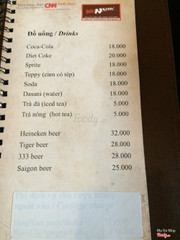 CNN
Đồ uống / Drinks
Coca-Cola 18.000
Diet Coke 20.000
Sprite 18.000
Teppy (cam có tép) 18.000
Soda 18.000
Dasani (water) 18.000
Trà đá (iced tea) 5.000
Trà nóng (hot tea) 5.000
foody
Heineken beer 32.000
Tiger beer 28.000
333 beer 28.000
Saigon beer 25.000